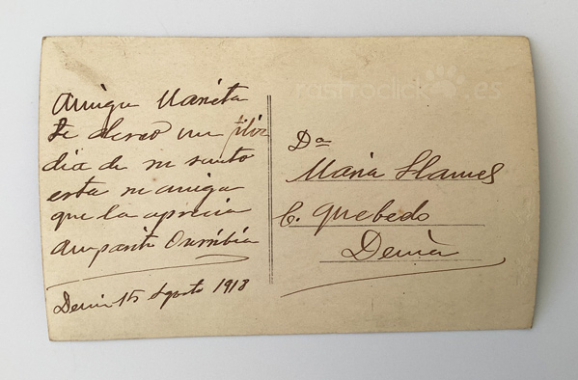 Amiga Marieta
te deseo un feliz
dia de su santo
esta su amiga
que la aprecia
Amparito
Denia 15 Agosto 1918
Da
Maria
C. Quebedo
Denia
rastroclick.es